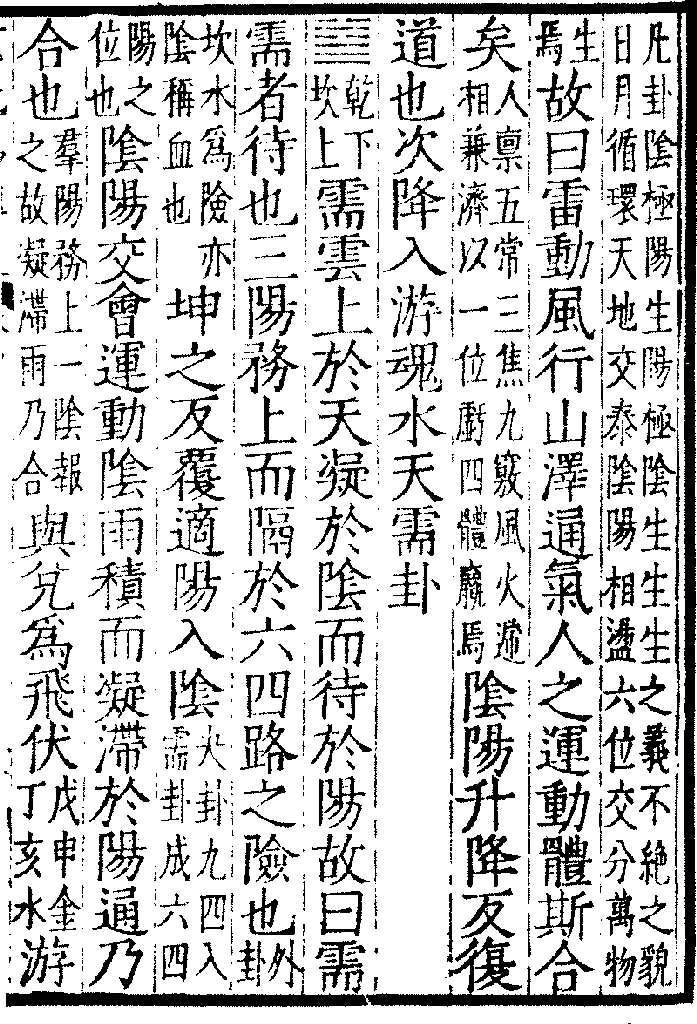 凡卦陰極陽生陽極陰生生生之義不絕之貌
日月循環天地交泰陰陽相盪六位交分萬物
生焉故曰雷動風行山澤通氣人之運動體斯合
矣人禀五常三焦九竅風火遞相兼濟以一位虧四體羸焉陰陽升降反復
道也次降入游魂水天需卦
䷄乾下坎上需雲上於天凝於陰而待於陽故曰需
需者待也三陽務上而隔於六四路之險也外卦
坎水爲險亦陰稱血也坤之反覆適陽入陰夬卦九四入需卦成六四
陽之位也陰陽交會運動陰雨積而凝滯於陽通乃
合也羣陽務上一陰報之故凝滯雨乃合與兌爲飛伏戊申金丁亥水游